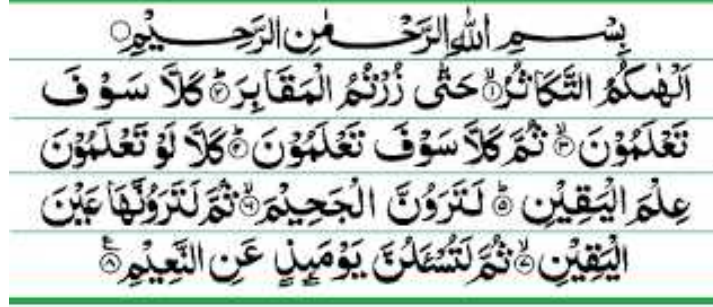 بِسْمِ اللهِ الرَّحْمٰنِ الرَّحِيْمِ ○
اَلْهٰىكُمُ التَّكَاثُرُ ۙ﴿۱﴾ حَتّٰى زُرْتُمُ الْمَقَابِرَ ؕ﴿۲﴾ كَلَّا سَوْفَ
تَعْلَمُوْنَ ۙ﴿۳﴾ ثُمَّ كَلَّا سَوْفَ تَعْلَمُوْنَ ؕ﴿۴﴾ كَلَّا لَوْ تَعْلَمُوْنَ
عِلْمَ الْيَقِيْنِ ؕ﴿۵﴾ لَتَرَوُنَّ الْجَحِيْمَ ۙ﴿۶﴾ ثُمَّ لَتَرَوُنَّهَا عَيْنَ
الْيَقِيْنِ ۙ﴿۷﴾ ثُمَّ لَتُسْـَٔلُنَّ يَوْمَىِٕذٍ عَنِ النَّعِيْمِ ﴿۸﴾